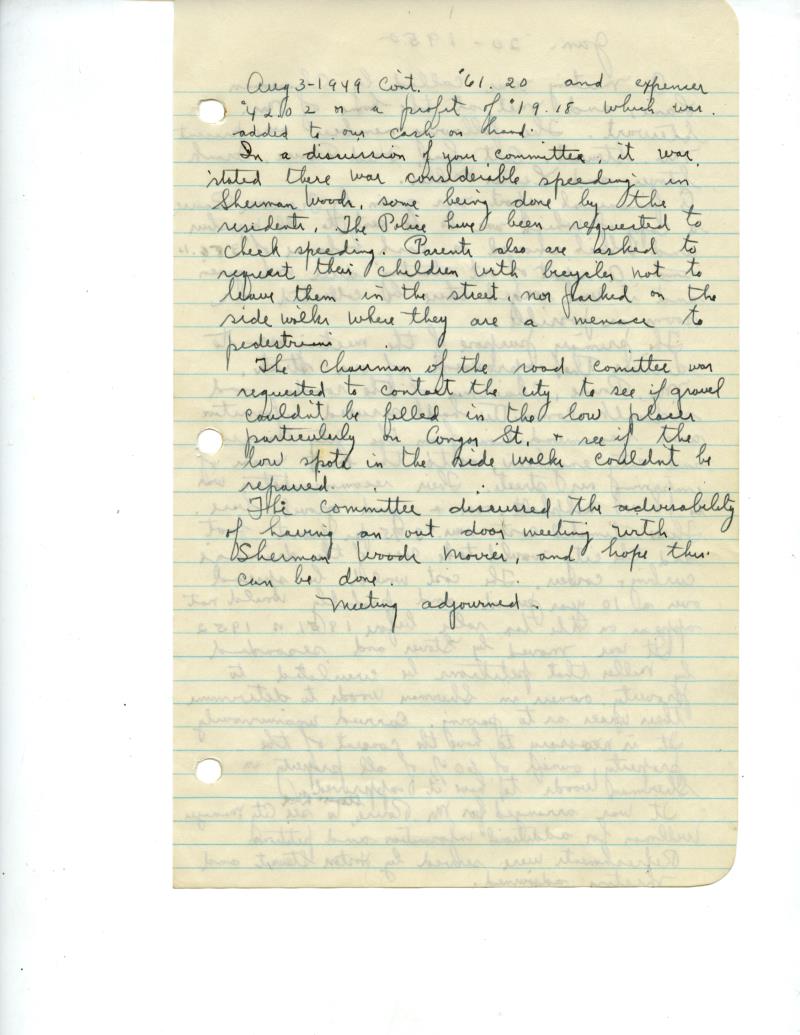 Aug 3-1949 Cont. $61.20 and expenses
$42.02 or a profit of $19.18 which was
added to our cash on hand.
In a discussion of your committee, it was
stated there was considerable speeding in
Sherman Woods, some being done by the
residents. The Police have been requested to
check speeding. Parents also are asked to
request their children with bicycles not to
leave them in the street, nor parked on the
side walks where they are a menace to
pedestrians.
The chairman of the road comittee was
requested to contact the city to see if gravel
couldn't be filled in the low places
particularly on Conger St. + see if the
low spots in the side walks couldn't be
repaired.
The committee discussed the advisability
of having an out door meeting with
Sherman Woods Movies, and hope this
can be done.
Meeting adjourned.